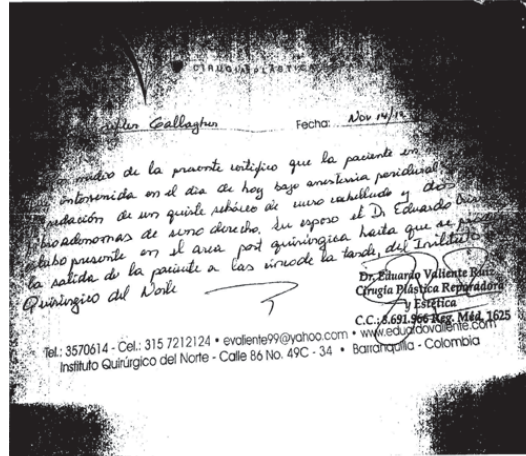 CIRUGIA PLASTICA
Gallagher Fecha: Nov 14/12
medio de la presente certifico que la paciente en
intervenida en el dia de hoy bajo anestesia peridural
de un quiste sebáceo de cuero cabelludo y dos
fibroadenomas de seno derecho. Su esposo el Dr. Eduardo
estubo presente en el area post quirúrgica hasta que se
la salida de la paciente a las cinco de la tarde, del Instituto
Quirúrgico del Norte
Dr. Eduardo Valiente Ruiz
Cirugía Plástica Reparadora
y Estética
C.C.: 8.691.966 Reg. Méd. 1625
Tel.: 3570614 - Cel.: 315 7212124 • evaliente99@yahoo.com • www.eduardovaliente.com
Instituto Quirúrgico del Norte - Calle 86 No. 49C - 34 • Barranquilla - Colombia